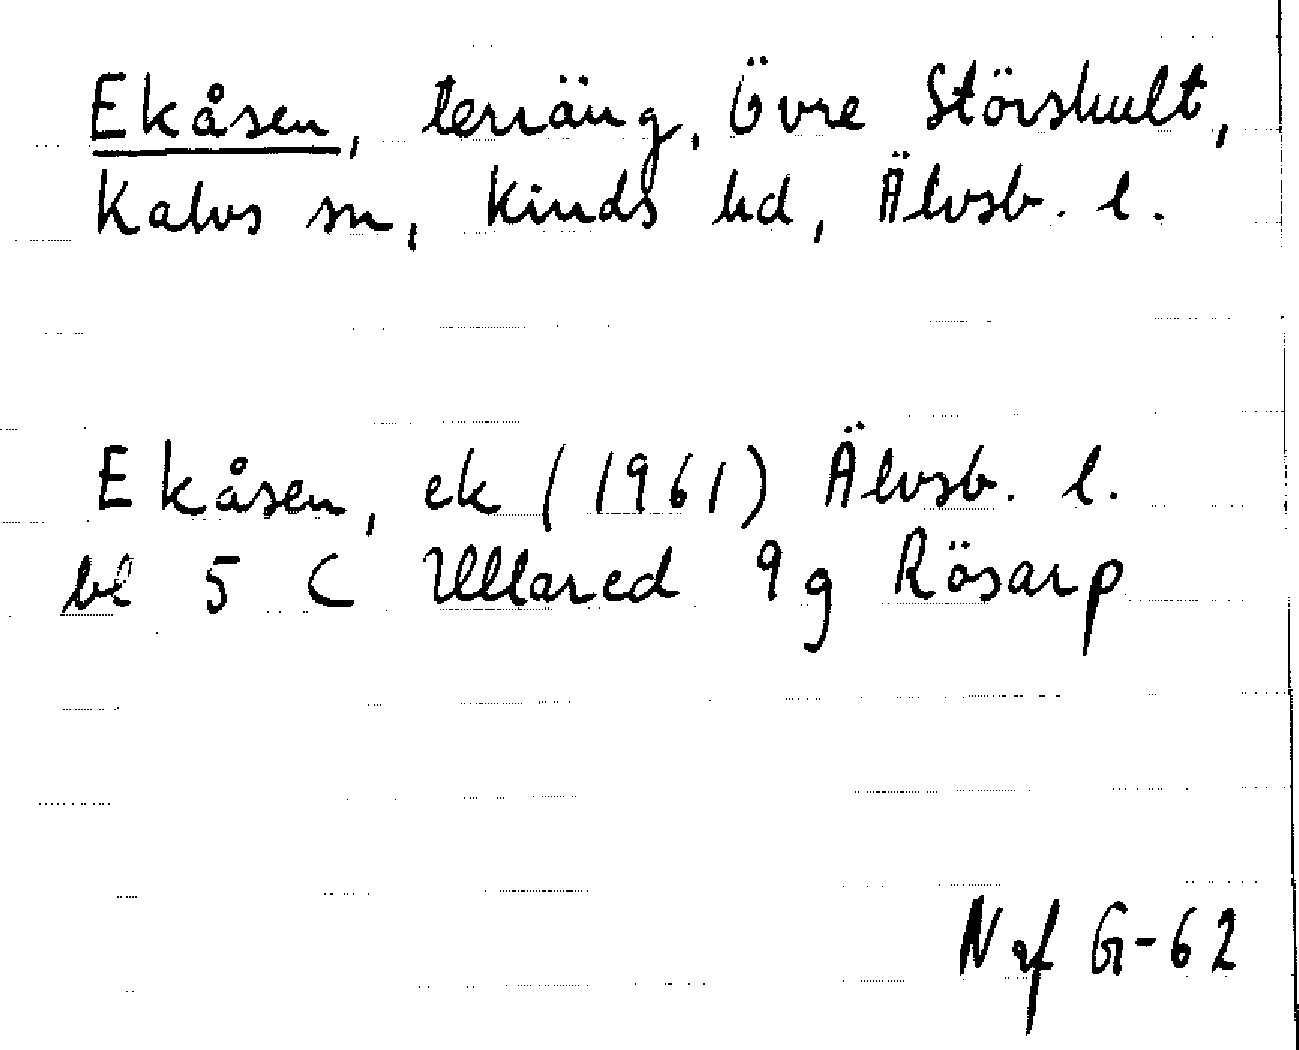 Ekåsen, terräng, Övre Störshult,
Kalvs sn, Kinds hd, Älvsb. l.
Ekåsen, ek (1961) Älvsb. l.
bl 5 C Ullared 9g Rösarp
Naf G-62